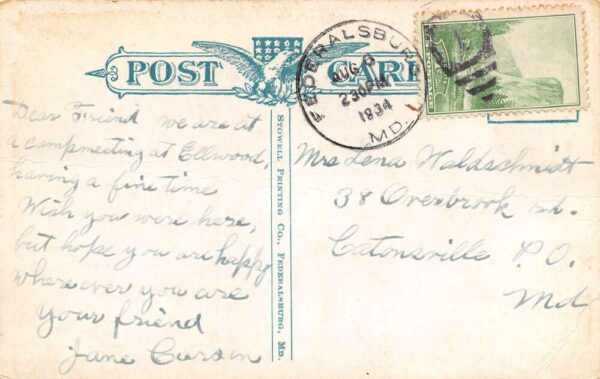 POST CARD
FEDERALSBURG
AUG 6
2 30 PM
1934
MD.
Dear Friend we are at
a campmeeting at Ellwood,
having a fine time
Wish you were here,
but hope you are happy
wherever you are
Your friend
June
STOWELL PRINTING CO., FEDERALSBURG, MD.
Mrs Lena Waldschmitt
38 Overbrook rd.
Catonsville P.O.
Md